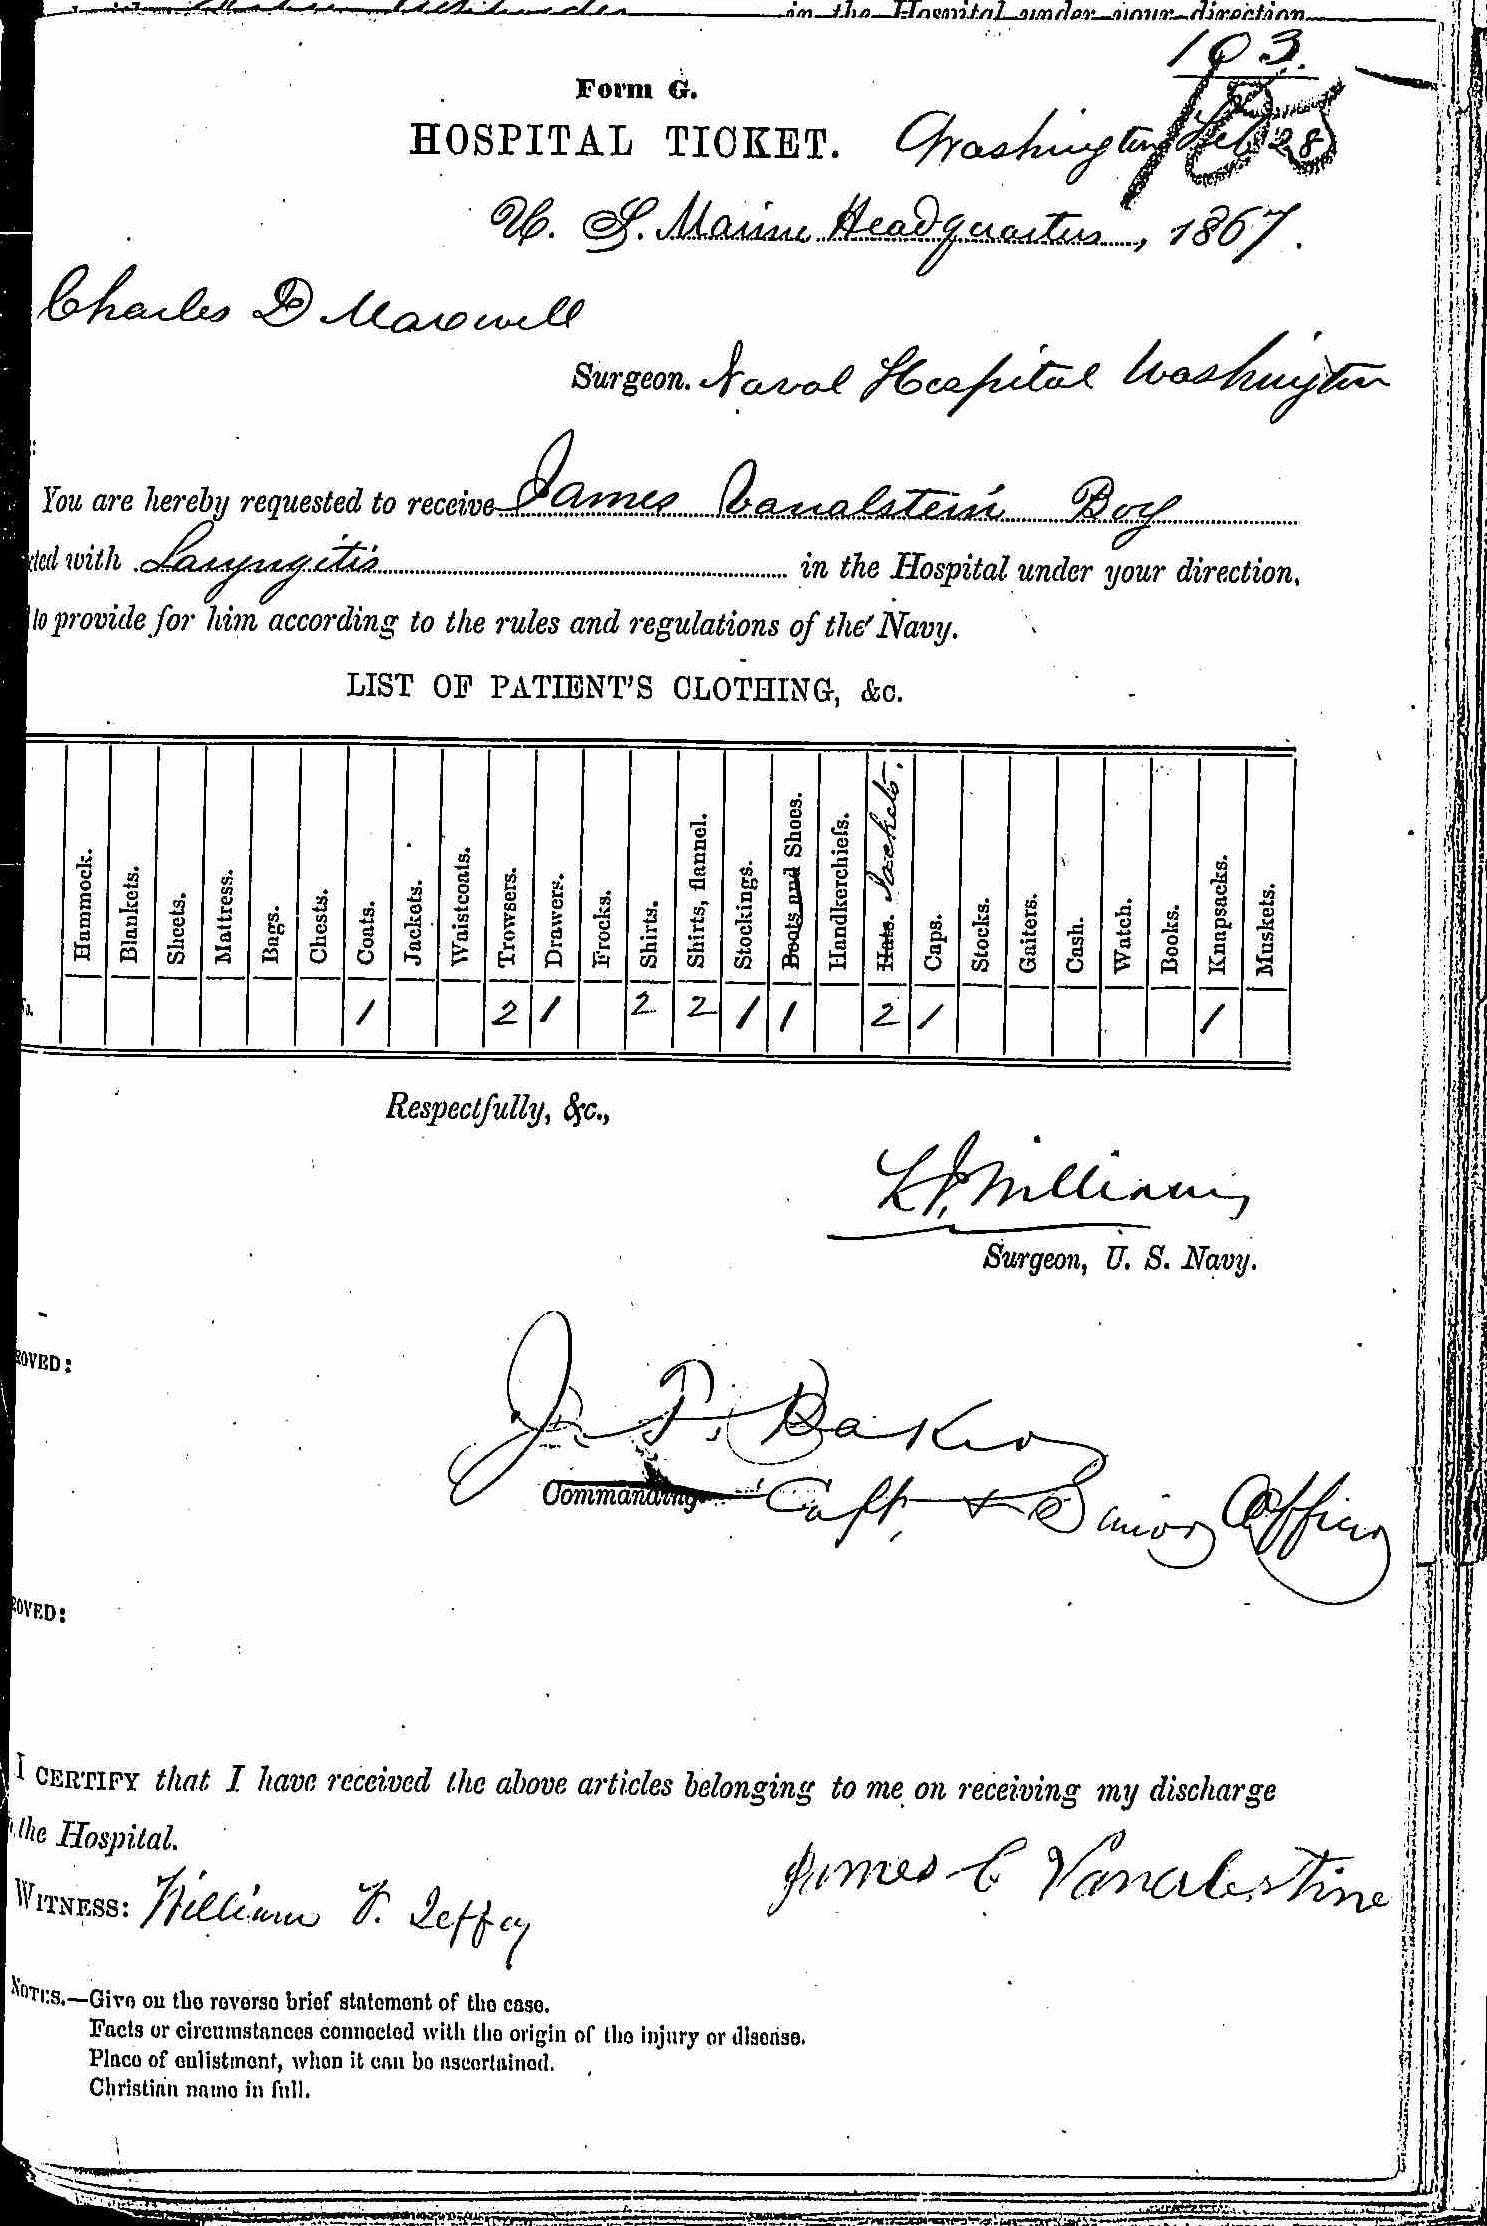 in the Hospital under your direction
103.
185
Form G.
HOSPITAL TICKET. Washington Feb 28
U. S. Marine Headquarters, 1867.
Charles D Maxwell
Surgeon. Naval Hospital Washington
:
You are hereby requested to receive James Vanalstein Boy
cted with Laryngitis in the Hospital under your direction,
to provide for him according to the rules and regulations of the Navy.
LIST OF PATIENT'S CLOTHING, &c.
Hammock. Blankets. Sheets. Mattress. Bags. Chests. Coats. Jackets. Waistcoats. Trowsers. Drawers. Frocks. Shirts. Shirts, flannel. Stockings. Boots and Shoes. Handkerchiefs. Hats. Jackets. Caps. Stocks. Gaiters. Cash. Watch. Books. Knapsacks. Muskets.
o. 1 2 1 2 2 1 1 2 1 1
Respectfully, &c.,
Williams
Surgeon, U. S. Navy.
ROVED:
J. P. Baker
Commanding Capt, & Senior Officer
ROVED:
I CERTIFY that I have received the above articles belonging to me on receiving my discharge
the Hospital.
James C Vanalestine
WITNESS: William V. Jeffey
NOTES.—Give on the reverse brief statement of the case.
Facts or circumstances connected with the origin of the injury or disease.
Place of enlistment, when it can be ascertained.
Christian name in full.